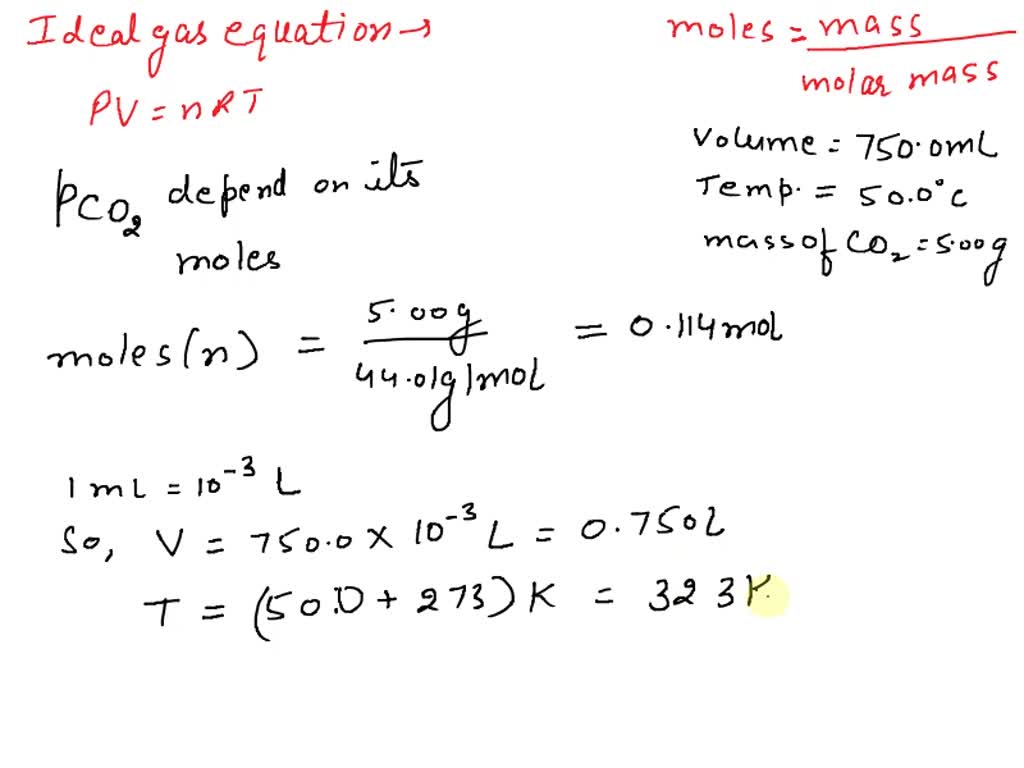 Ideal gas equation →
PV = nRT
PCO₂ depend on its
moles
moles = mass / molar mass
Volume = 750.0mL
Temp. = 50.0°C
mass of CO₂ = 5.00g
moles(n) = 5.00g / 44.01g/mol = 0.114mol
1 mL = 10⁻³ L
So, V = 750.0 × 10⁻³ L = 0.750L
T = (50.0 + 273) K = 323K